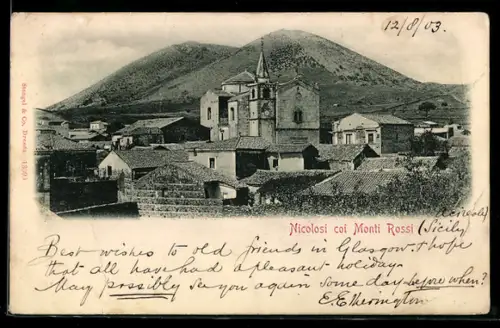 12/8/03.
Stengel & Co., Dresda. 13203
Nicolosi coi Monti Rossi (Sicily
Best wishes to old friends in Glasgow. + hope
that all have had a pleasant holiday.
May possibly see you again some day before when?
E. Etherington